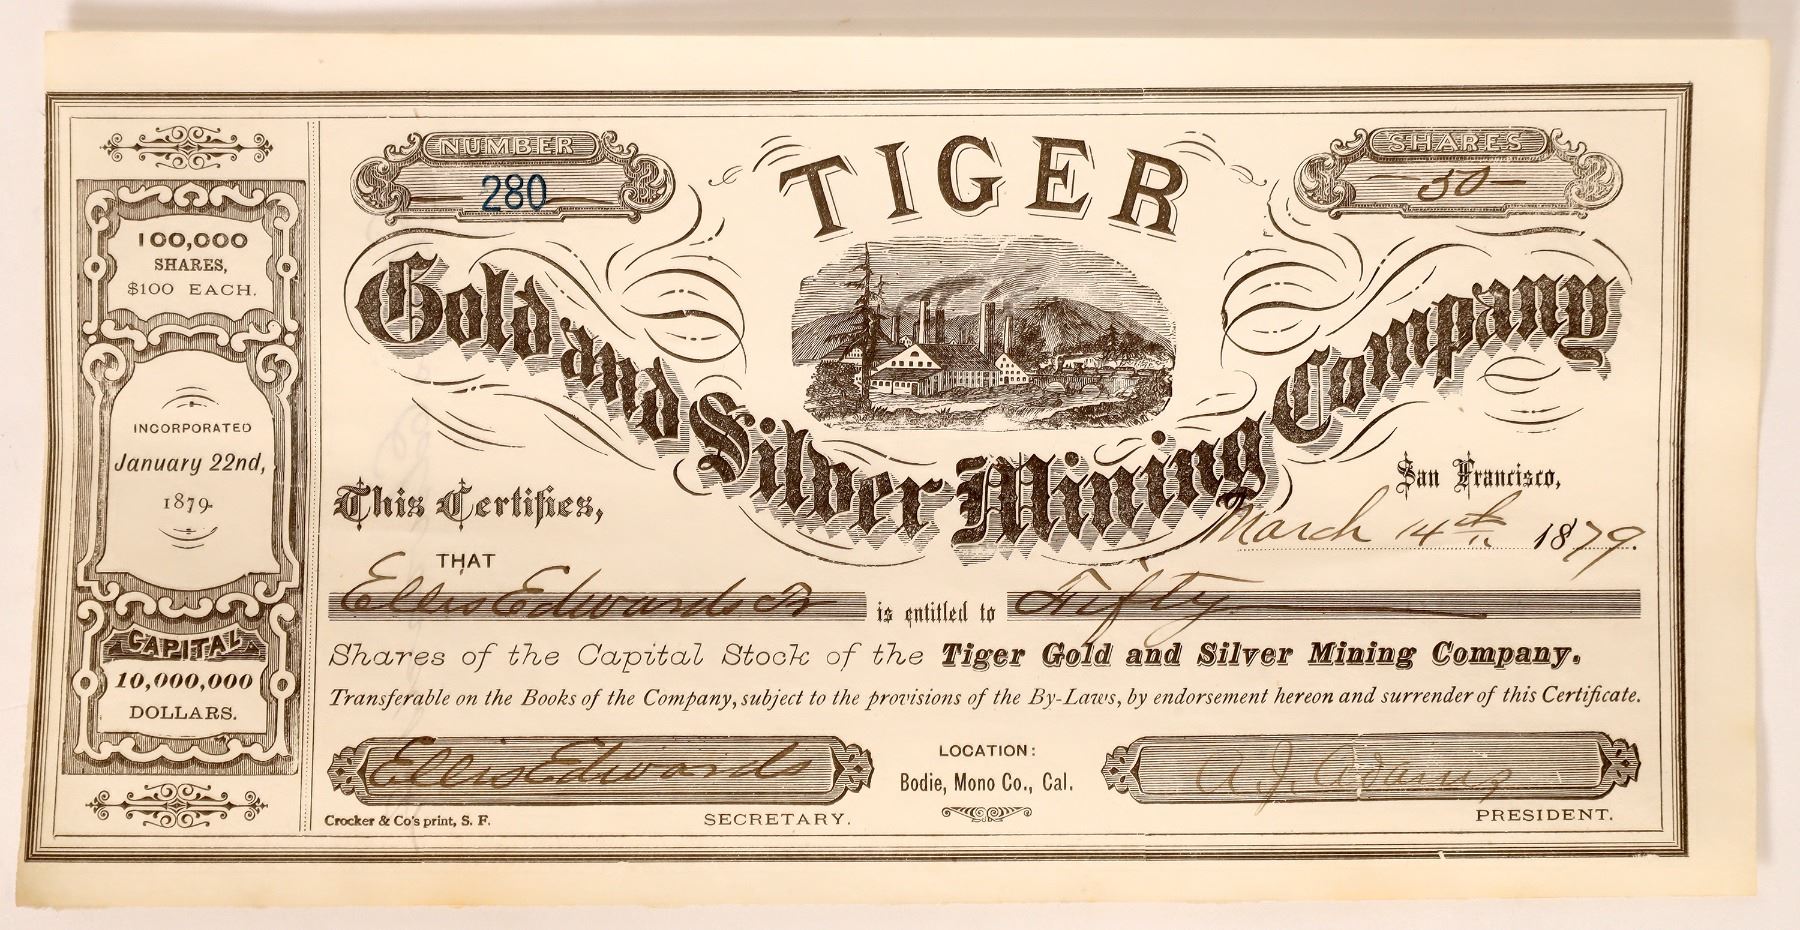 NUMBER
280
TIGER
SHARES
50
Gold and Silver Mining Company
100,000
SHARES,
$100 EACH.
INCORPORATED
January 22nd,
1879.
CAPITAL
10,000,000
DOLLARS.
San Francisco,
March 14th 1879.
This Certifies,
THAT
Ellis Edwards Jr is entitled to Fifty
Shares of the Capital Stock of the Tiger Gold and Silver Mining Company.
Transferable on the Books of the Company, subject to the provisions of the By-Laws, by endorsement hereon and surrender of this Certificate.
Ellis Edwards
LOCATION:
Bodie, Mono Co., Cal.
A. J. Adams
Crocker & Co's print, S. F.
SECRETARY.
PRESIDENT.